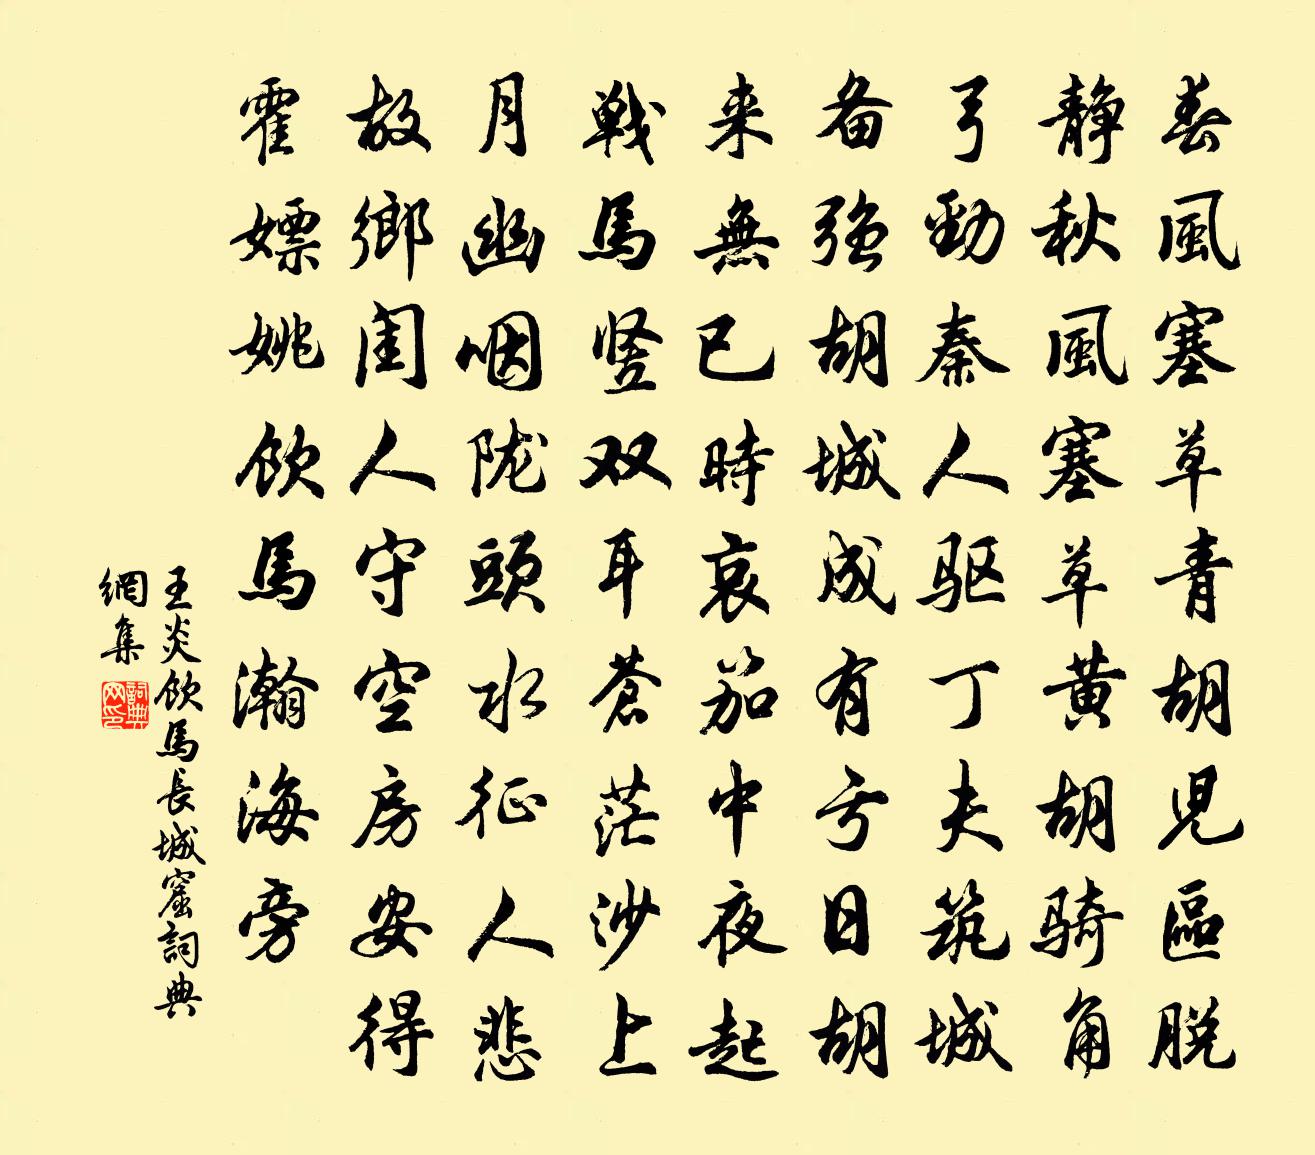 春風塞草青胡児區脱
静秋風塞草黄胡骑角
弓勁秦人驱丁夫筑城
备强胡城成有亏日胡
来無已時哀笳中夜起
戦馬竖双耳蒼茫沙上
月幽咽陇頭水征人悲
故鄉闺人守空房安得
霍嫖姚飲馬瀚海旁
王炎飲馬長城窟詞典
網集
詞典网印